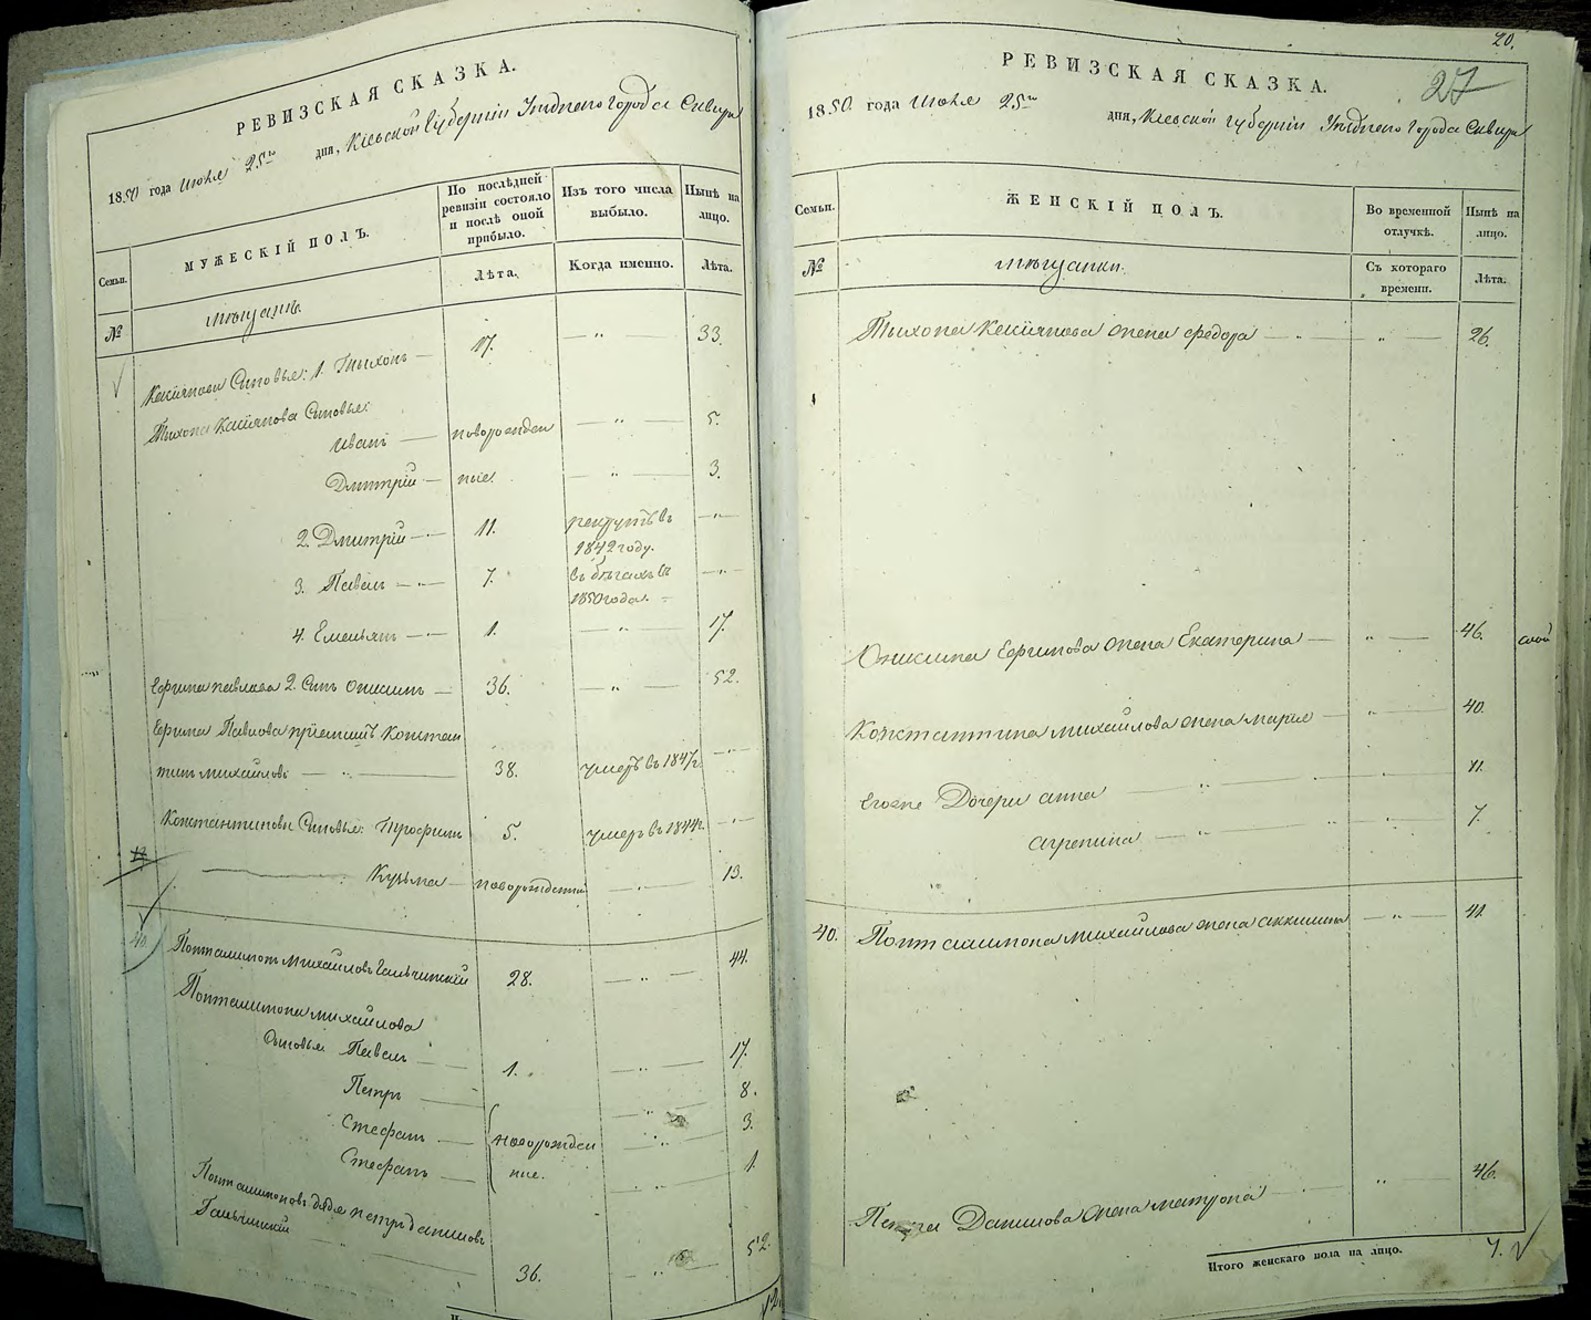 РЕВИЗСКАЯ СКАЗКА.
1850 года Июня 25го дня, Кіевской Губерніи Уѣзднаго Города Сквиры
Семьи.
МУЖЕСКІЙ ПОЛЪ.
По послѣдней ревизіи состояло и послѣ оной прибыло.
Изъ того числа выбыло.
Нынѣ на лицо.
№
мѣщане
Лѣта.
Когда именно.
Лѣта.
Касіянови Сыновья: 1. Тыхонъ — 17. — " — 33.
Тыхона Касіянова Сыновья:
Иванъ — новорожден — " — 5.
Дмитрій — ные. — " — 3.
2. Дмитрій — " 11. рекрутъ въ 1842 году. — " —
3. Павелъ — " — 7. въ бѣгахъ въ 1850 года. — " —
4. Емельянъ — " 1. — " — 17.
Ефима Павлова 2. Сынъ Онисимъ — 36. — " — 52.
Ефима Павлова пріемишъ Констан
тинъ Михайловъ — " — 38. умеръ въ 1847г. — " —
Константинови Сыновья: Трофимъ 5. умеръ въ 1844г. — " —
Кузьма — новорожденный — " — 13.
40. Понталимонъ Михайловъ Гальчинскій 28. — " — 44.
Понталимона Михайлова
Сыновья Павелъ — 1. — " — 17.
Петръ — — " — 8.
Стефанъ — новорожден — " — 3.
Стефанъ — ные. — " — 1.
Понталимоновъ дядя Петръ Даниловъ
Гальчинскій — " — 36. — " — 52.
12.
20.
27
РЕВИЗСКАЯ СКАЗКА.
1850. года Июня 25го дня, Кіевской Губерніи Уѣзднаго Города Сквиры
Семьи.
ЖЕНСКІЙ ПОЛЪ.
Во временной отлучкѣ.
Нынѣ на лицо.
№
мѣщанки.
Съ котораго времени.
Лѣта.
Тыхона Касіянова жена Федора — " — " — 26.
Онисима Ефимова жена Екатерина — " — 46.
Константина Михайлова жена Марія — " — 40.
Егоже Дочери Анна — " — 11.
Агрепина — " — " — 7.
40. Понталимона Михайлова жена Аккилина — " — 41.
Петра Данилова жена Матрона — " — 46.
Итого женскаго пола на лицо. 7.